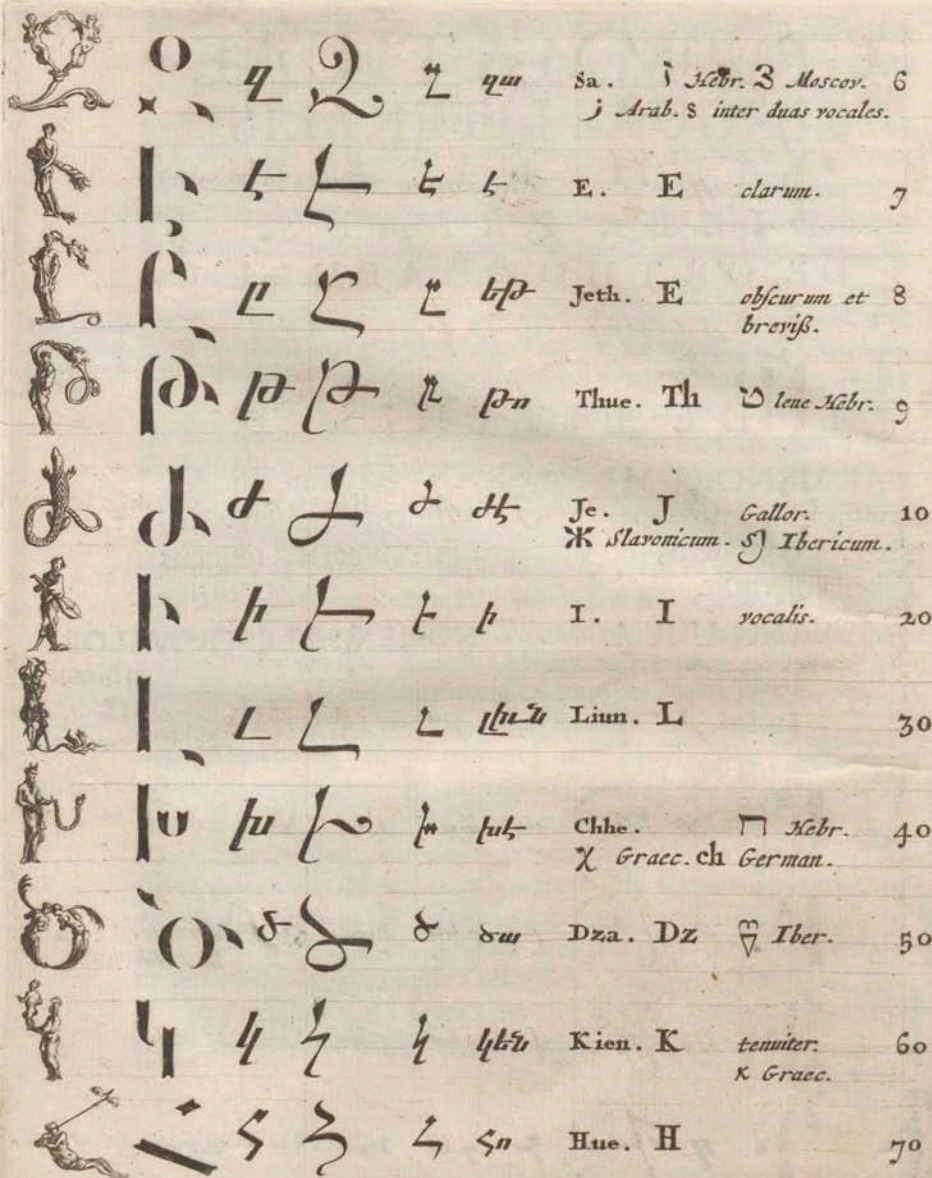 զ Զ զ զա Sa. ז Hebr. З Moscov. 6
ز Arab. s inter duas vocales.
է Է է է E. E clarum. 7
ը Ը ը եթ Jeth. E obscurum et 8
breviß.
թ Թ թ թո Thue. Th ט lene Hebr. 9
ժ Ժ ժ ժէ Je. J Gallor. 10
Ж Slavonicum. Ibericum.
ի Ի ի ի I. I vocalis. 20
լ Լ լ լիւն Liun. L 30
խ Խ խ խէ Chhe. ח Hebr. 40
χ Graec. ch German.
ծ Ծ ծ ծա Dza. Dz Iber. 50
կ Կ կ կեն Kien. K tenuiter. 60
κ Graec.
հ Հ հ հո Hue. H 70